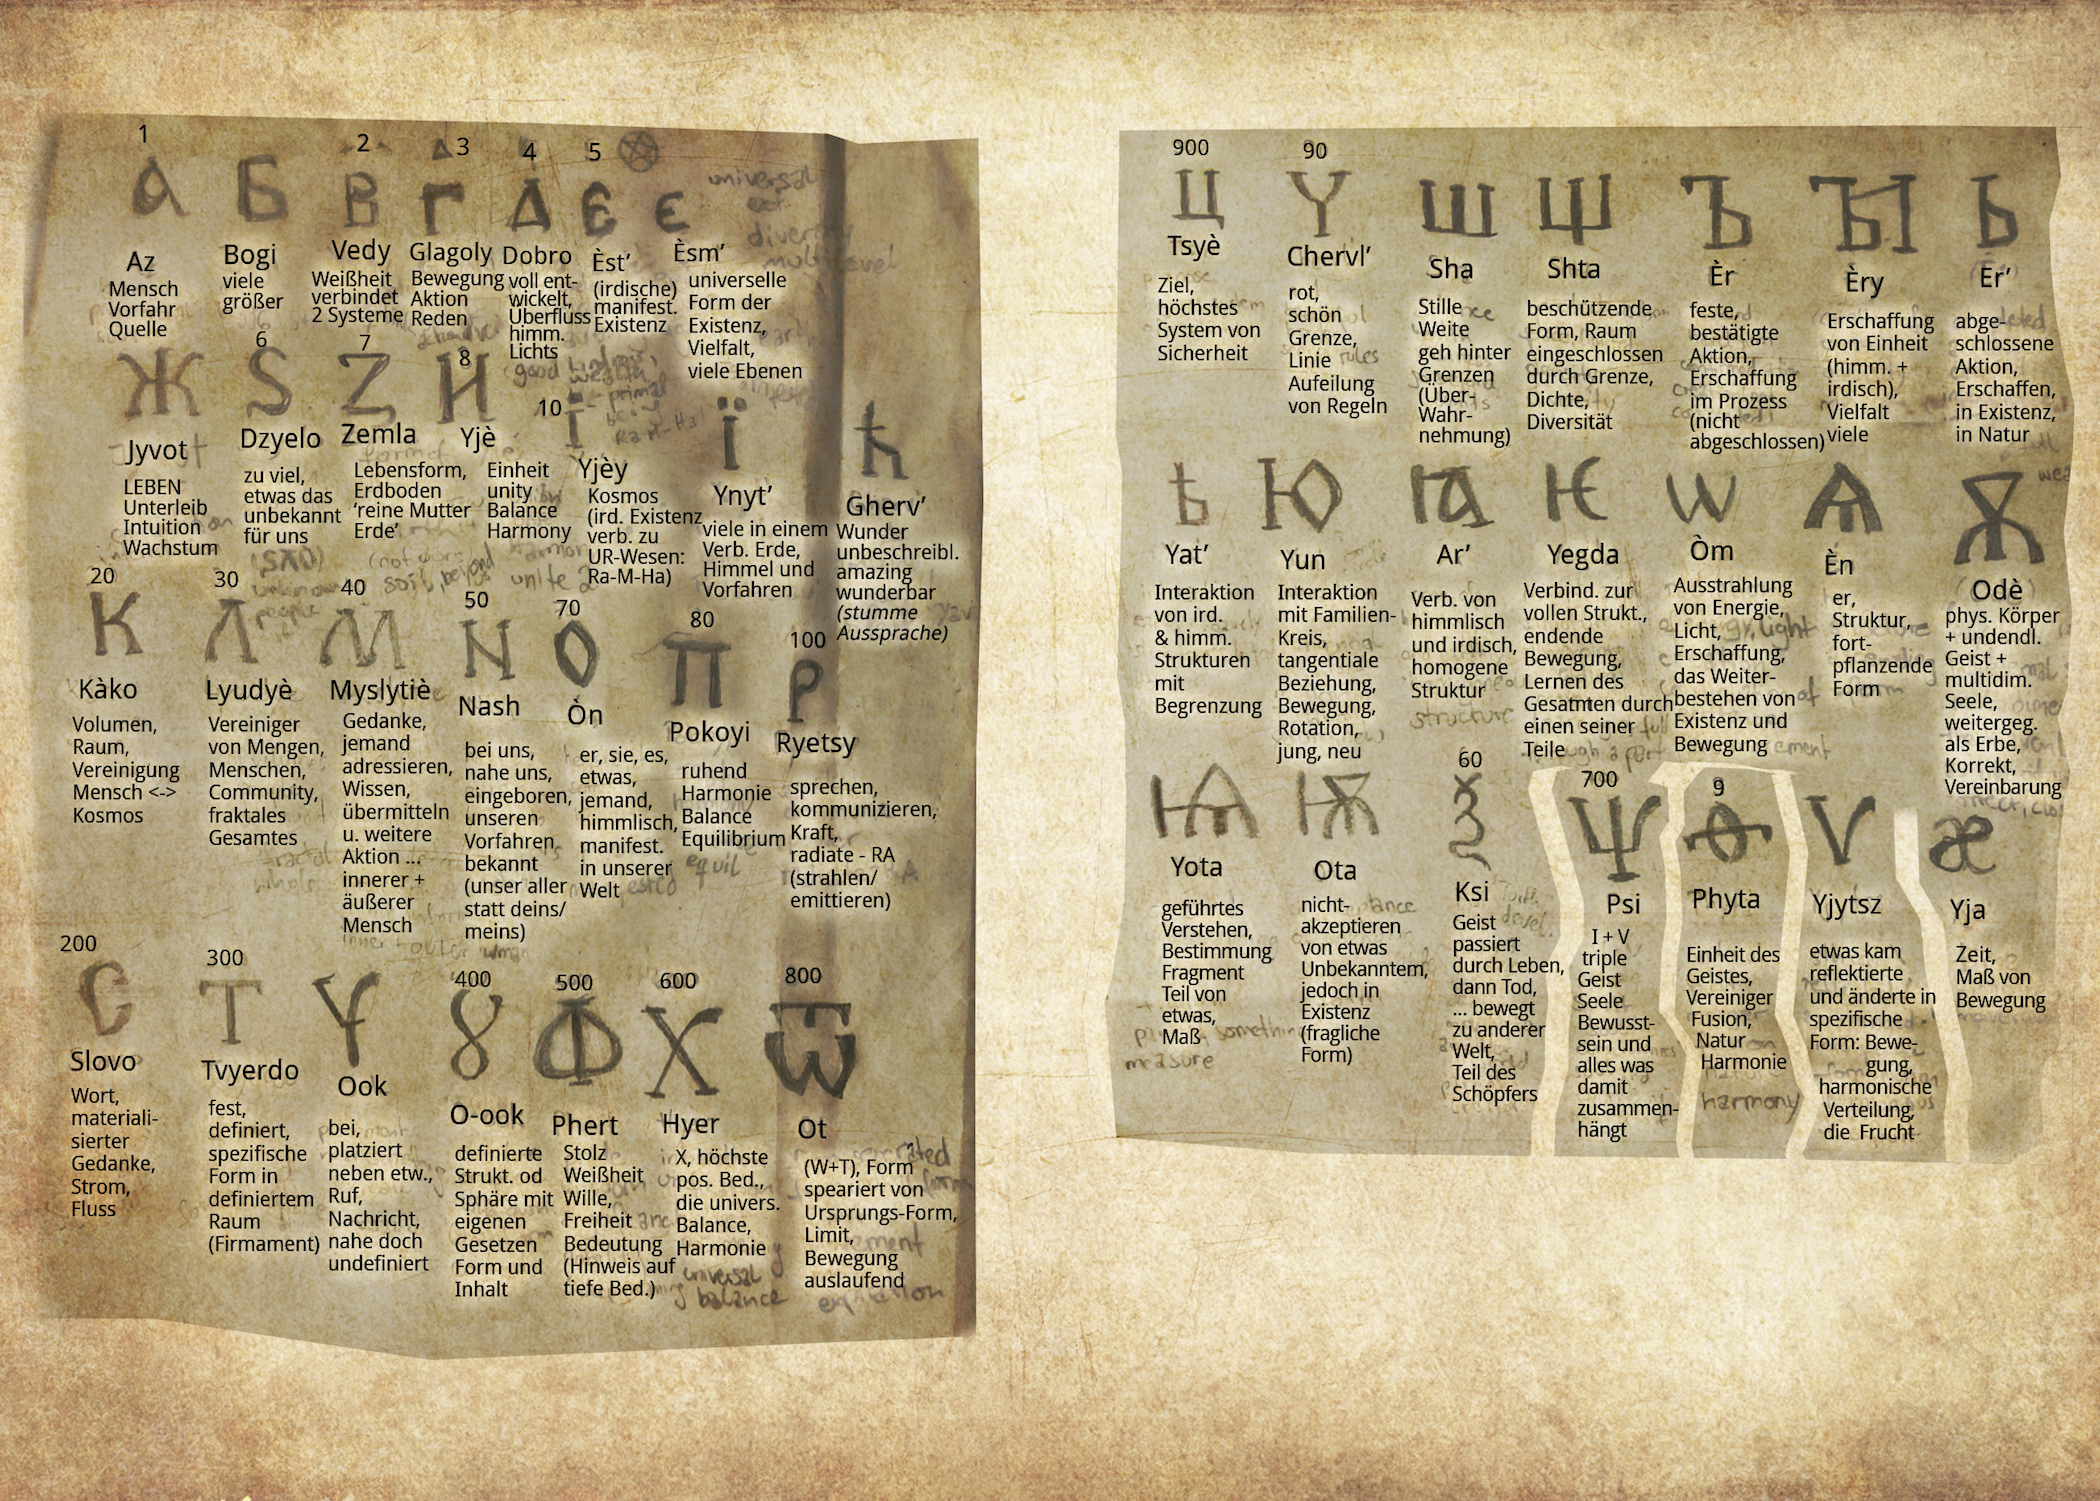 1 2 3 4 5
а Б В Г Δ Є є
Az Bogi Vedy Glagoly Dobro Èst’ Èsm’
Mensch
Vorfahr
Quelle
viele
größer
Weißheit
verbindet
2 Systeme
Bewegung
Aktion
Reden
voll ent-
wickelt,
Überfluss
himm.
Lichts
(irdische)
manifest.
Existenz
universelle
Form der
Existenz,
Vielfalt,
viele Ebenen
universal
6 7 8 10
Ж Ѕ Z И Ї ї ћ
Jyvot Dzyelo Zemla Yjè Yjèy Ynyt’ Gherv’
LEBEN
Unterleib
Intuition
Wachstum
zu viel,
etwas das
unbekannt
für uns
Lebensform,
Erdboden
‘reine Mutter
Erde’
Einheit
unity
Balance
Harmony
Kosmos
(ird. Existenz
verb. zu
UR-Wesen:
Ra-M-Ha)
viele in einem
Verb. Erde,
Himmel und
Vorfahren
Wunder
unbeschreibl.
amazing
wunderbar
(stumme
Aussprache)
20 30 40 50 70 80 100
К Λ М N О П Р
Kàko Lyudyè Myslytiè Nash Òn Pokoyi Ryetsy
Volumen,
Raum,
Vereinigung
Mensch <->
Kosmos
Vereiniger
von Mengen,
Menschen,
Community,
fraktales
Gesamtes
Gedanke,
jemand
adressieren,
Wissen,
übermitteln
u. weitere
Aktion ...
innerer +
äußerer
Mensch
bei uns,
nahe uns,
eingeboren,
unseren
Vorfahren
bekannt
(unser aller
statt deins/
meins)
er, sie, es,
etwas,
jemand,
himmlisch,
manifest.
in unserer
Welt
ruhend
Harmonie
Balance
Equilibrium
equil
sprechen,
kommunizieren,
Kraft,
radiate - RA
(strahlen/
emittieren)
200 300 400 500 600 800
С Т Ү 8 Ф Х Ѿ
Slovo Tvyerdo Ook O-ook Phert Hyer Ot
Wort,
materiali-
sierter
Gedanke,
Strom,
Fluss
fest,
definiert,
spezifische
Form in
definiertem
Raum
(Firmament)
bei,
platziert
neben etw.,
Ruf,
Nachricht,
nahe doch
undefiniert
definierte
Strukt. od
Sphäre mit
eigenen
Gesetzen
Form und
Inhalt
Stolz
Weißheit
Wille,
Freiheit
Bedeutung
(Hinweis auf
tiefe Bed.)
X, höchste
pos. Bed.,
die univers.
Balance,
Harmonie
universal
balance
(W+T), Form
speariert von
Ursprungs-Form,
Limit,
Bewegung
auslaufend
900 90
Ц Ү Ш Щ Ъ ЪІ Ь
Tsyè Chervl’ Sha Shta Èr Èry Èr’
Ziel,
höchstes
System von
Sicherheit
rot,
schön
Grenze,
Linie
Aufeilung
von Regeln
Stille
Weite
geh hinter
Grenzen
(Über-
Wahr-
nehmung)
beschützende
Form, Raum
eingeschlossen
durch Grenze,
Dichte,
Diversität
feste,
bestätigte
Aktion,
Erschaffung
im Prozess
(nicht
abgeschlossen)
Erschaffung
von Einheit
(himm. +
irdisch),
Vielfalt
viele
abge-
schlossene
Aktion,
Erschaffen,
in Existenz,
in Natur
ѣ Ю Ꙗ Ѥ ѡ Ѧ Ѫ
Yat’ Yun Ar’ Yegda Òm Èn Odè
Interaktion
von ird.
& himm.
Strukturen
mit
Begrenzung
Interaktion
mit Familien-
Kreis,
tangentiale
Beziehung,
Bewegung,
Rotation,
jung, neu
Verb. von
himmlisch
und irdisch,
homogene
Struktur
structure
Verbind. zur
vollen Strukt.,
endende
Bewegung,
Lernen des
Gesamten durch
einen seiner
Teile
Ausstrahlung
von Energie,
Licht,
Erschaffung,
das Weiter-
bestehen von
Existenz und
Bewegung
er,
Struktur,
fort-
pflanzende
Form
phys. Körper
+ undendl.
Geist +
multidim.
Seele,
weitergeg.
als Erbe,
Korrekt,
Vereinbarung
60 700 9
Ѩ Ѭ Ѯ Ѱ Ѳ Ѵ æ
Yota Ota Ksi Psi Phyta Yjytsz Yja
geführtes
Verstehen,
Bestimmung
Fragment
Teil von
etwas,
Maß
measure
nicht-
akzeptieren
von etwas
Unbekanntem,
jedoch in
Existenz
(fragliche
Form)
Geist
passiert
durch Leben,
dann Tod,
... bewegt
zu anderer
Welt,
Teil des
Schöpfers
I + V
triple
Geist
Seele
Bewusst-
sein und
alles was
damit
zusammen-
hängt
Einheit des
Geistes,
Vereiniger
Fusion,
Natur
Harmonie
harmony
etwas kam
reflektierte
und änderte in
spezifische
Form: Bewe-
gung,
harmonische
Verteilung,
die Frucht
Zeit,
Maß von
Bewegung